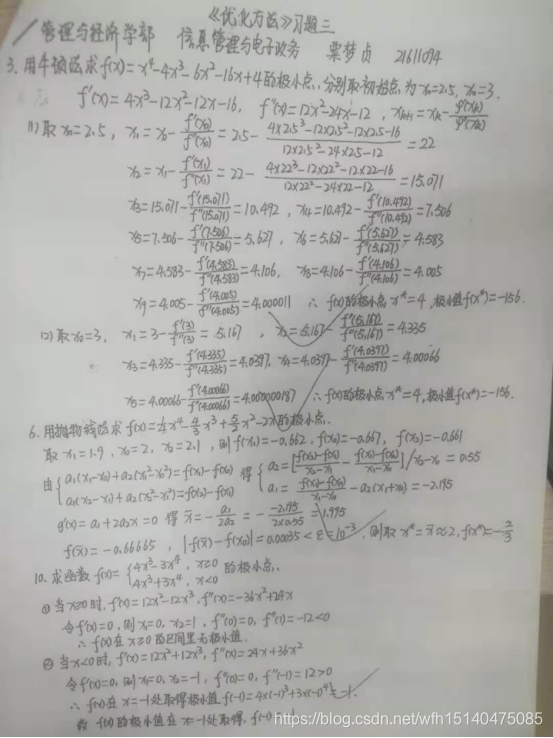 《优化方法》习题三
管理与经济学部 信息管理与电子政务 栗梦贞 21611094
3. 用牛顿法求f(x)=x⁴-4x³-6x²-16x+4的极小点,分别取初始点为x₀=2.5, x₀=3.
f'(x)=4x³-12x²-12x-16, f''(x)=12x²-24x-12, xₖ₊₁=xₖ-φ'(xₖ)/φ''(xₖ)
(1) 取x₀=2.5, x₁=x₀-f'(x₀)/f''(x₀)=2.5-(4×2.5³-12×2.5²-12×2.5-16)/(12×2.5²-24×2.5-12)=22
x₂=x₁-f'(x₁)/f''(x₁)=22-(4×22³-12×22²-12×22-16)/(12×22²-24×22-12)=15.071
x₃=15.071-f'(15.071)/f''(15.071)=10.492, x₄=10.492-f'(10.492)/f''(10.492)=7.506
x₅=7.506-f'(7.506)/f''(7.506)=5.627, x₆=5.627-f'(5.627)/f''(5.627)=4.583
x₇=4.583-f'(4.583)/f''(4.583)=4.106, x₈=4.106-f'(4.106)/f''(4.106)=4.005
x₉=4.005-f'(4.005)/f''(4.005)=4.000011 ∴ f(x)的极小点x*=4, 极小值f(x*)=-156.
(2) 取x₀=3, x₁=3-f'(3)/f''(3)=5.167, x₂=5.167-f'(5.167)/f''(5.167)=4.335
x₃=4.335-f'(4.335)/f''(4.335)=4.0397, x₄=4.0397-f'(4.0397)/f''(4.0397)=4.00066
x₅=4.00066-f'(4.00066)/f''(4.00066)=4.000000187 ∴ f(x)的极小点x*=4, 极小值f(x*)=-156.
6. 用抛物线法求f(x)=¼x⁴-x³+x²-2x的极小点.
取x₁=1.9, x₀=2, x₂=2.1, 则f(x₁)=-0.662, f(x₀)=-0.667, f(x₂)=-0.661
由{a₁(x₁-x₀)+a₂(x₁²-x₀²)=f(x₁)-f(x₀) 得{a₂=[(f(x₂)-f(x₁))/(x₂-x₁)-(f(x₁)-f(x₀))/(x₁-x₀)]/x₂-x₀=0.55
a₁(x₂-x₁)+a₂(x₂²-x₁²)=f(x₂)-f(x₁) a₁=(f(x₁)-f(x₀))/(x₁-x₀)-a₂(x₁+x₀)=-2.195
g'(x)=a₁+2a₂x=0 得x̄=-a₁/2a₂=-(-2.195)/(2×0.55)=1.995
f(x̄)=-0.66665, |f(x̄)-f(x₀)|=0.00035<ε=10⁻³, 则取x*=x̄≈2, f(x*)=-2/3
10. 求函数f(x)={4x³-3x⁴, x≥0 的极小点.
4x³+3x⁴, x<0
① 当x≥0时, f'(x)=12x²-12x³, f''(x)=-36x²+24x
令f'(x)=0, 则x₁=0, x₂=1, f''(0)=0, f''(1)=-12<0
∴ f(x)在x≥0的区间里无极小值.
② 当x<0时, f'(x)=12x²+12x³, f''(x)=24x+36x²
令f'(x)=0, 则x₁=0, x₂=-1, f''(0)=0, f''(-1)=12>0
∴ f(x)在x=-1处取得极小值f(-1)=4×(-1)³+3×(-1)⁴=-1.
故f(x)的极小值在x=-1处取得, f(-1)=-1
https://blog.csdn.net/wfh15140475085